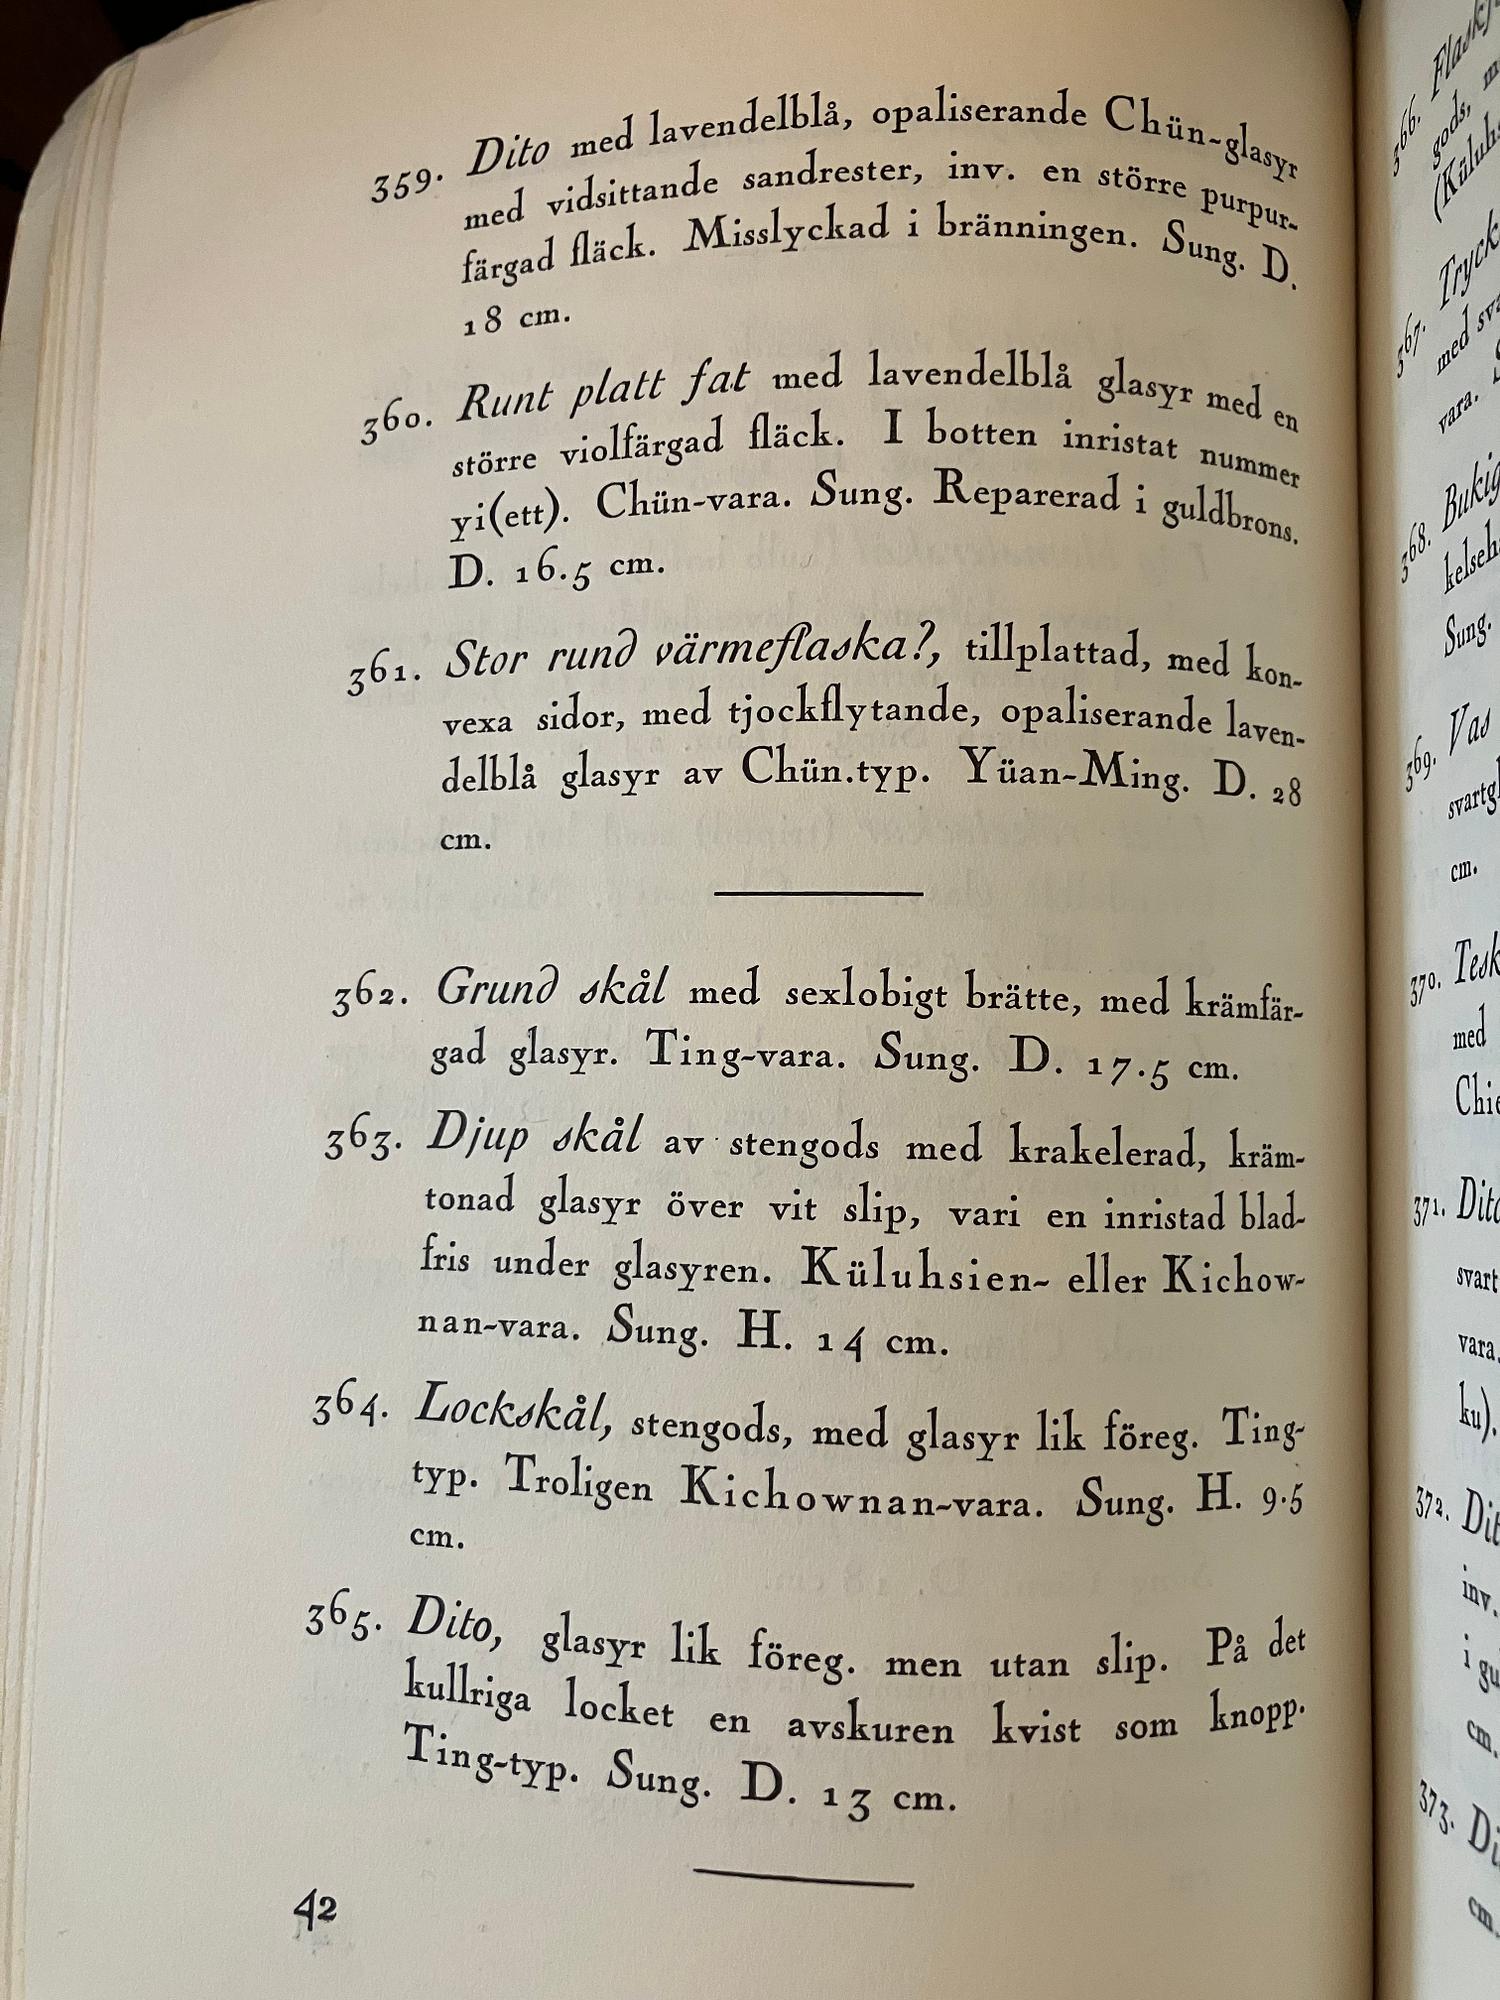 359. Dito med lavendelblå, opaliserande Chün-glasyr
med vidsittande sandrester, inv. en större purpur-
färgad fläck. Misslyckad i bränningen. Sung. D.
18 cm.
360. Runt platt fat med lavendelblå glasyr med en
större violfärgad fläck. I botten inristat nummer
yi(ett). Chün-vara. Sung. Reparerad i guldbrons.
D. 16.5 cm.
361. Stor rund värmeflaska?, tillplattad, med kon-
vexa sidor, med tjockflytande, opaliserande laven-
delblå glasyr av Chün.typ. Yüan-Ming. D. 28
cm.
362. Grund skål med sexlobigt brätte, med krämfär-
gad glasyr. Ting-vara. Sung. D. 17.5 cm.
363. Djup skål av stengods med krakelerad, kräm-
tonad glasyr över vit slip, vari en inristad blad-
fris under glasyren. Küluhsien- eller Kichow-
nan-vara. Sung. H. 14 cm.
364. Lockskål, stengods, med glasyr lik föreg. Ting-
typ. Troligen Kichownan-vara. Sung. H. 9.5
cm.
365. Dito, glasyr lik föreg. men utan slip. På det
kullriga locket en avskuren kvist som knopp.
Ting-typ. Sung. D. 13 cm.
42
366.
gods,
367.
med
vara.
368.
Sung.
369. Vas
cm.
370.
med
371.
vara.
ku).
372.
inv.
i
cm.
373.
cm.